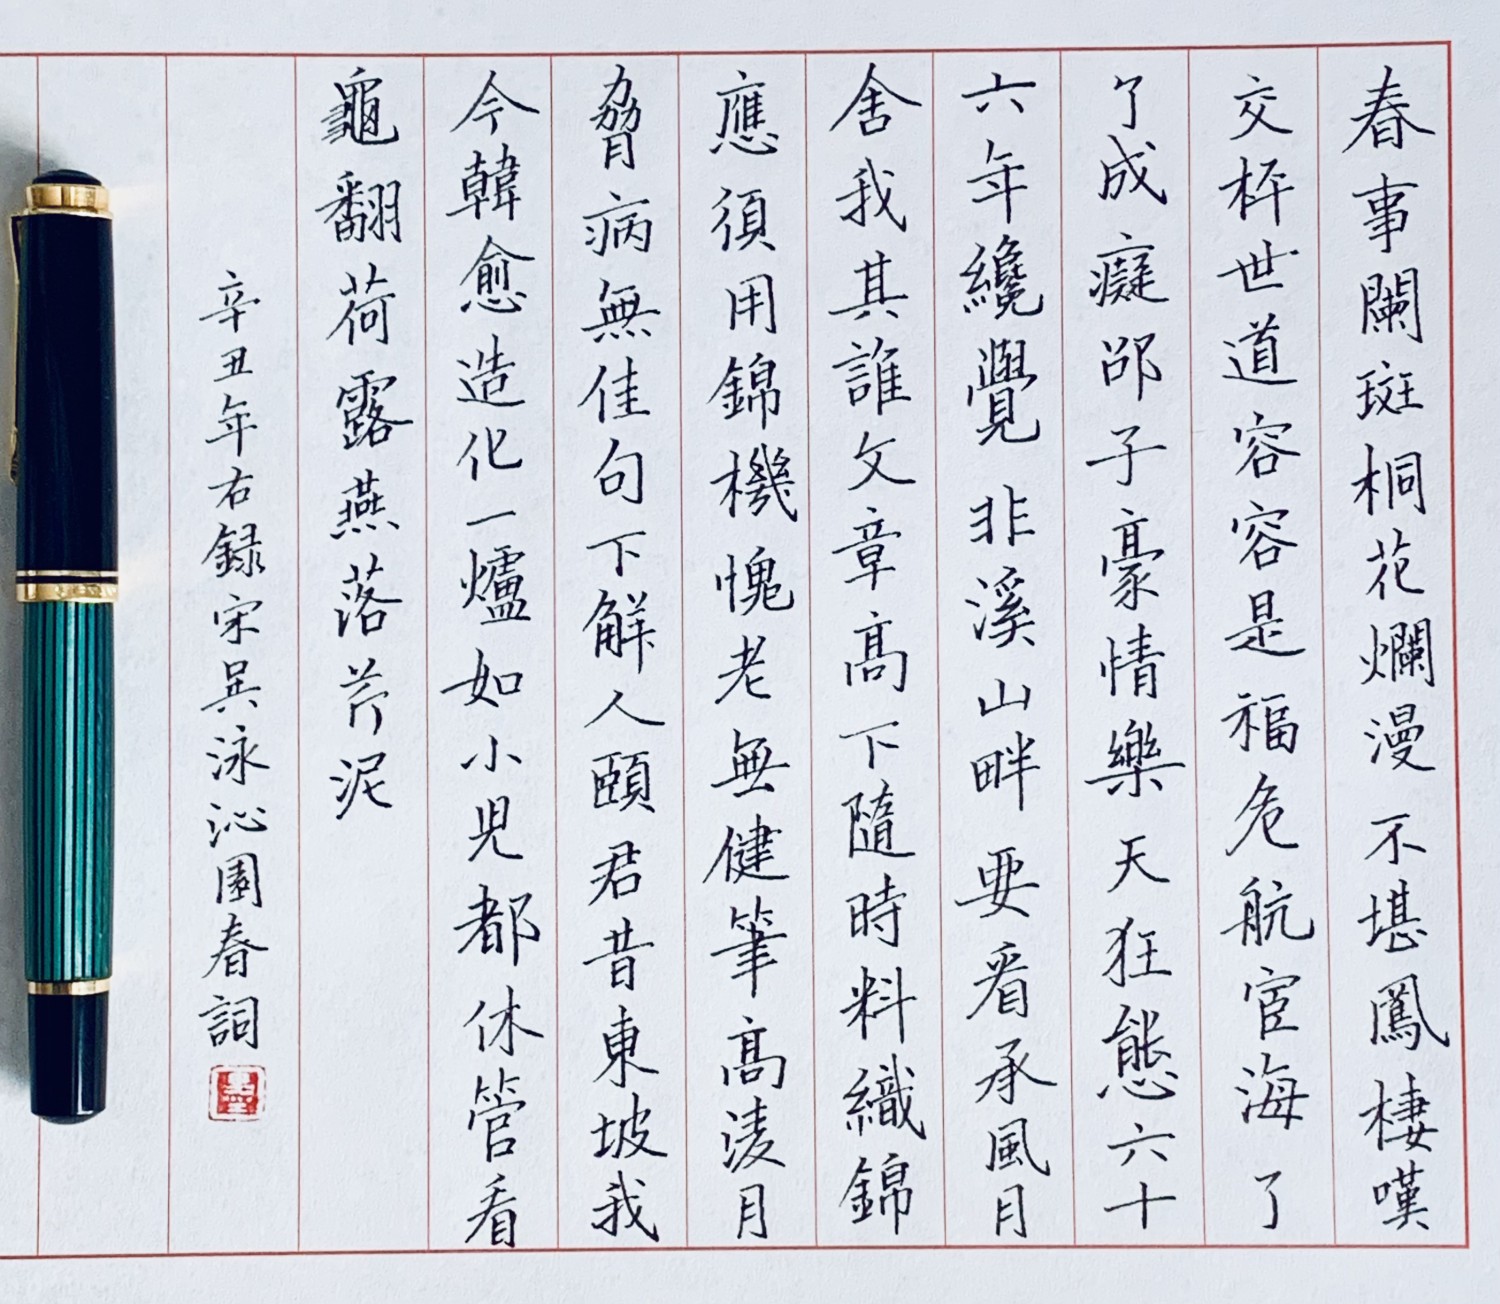 春事闌斑桐花爛漫不堪鳳棲嘆
交枰世道容容是福危航宦海了
了成癡邵子豪情樂天狂態六十
六年纔覺非溪山畔要看承風月
舍我其誰文章高下隨時料織錦
應須用錦機愧老無健筆高淩月
脅病無佳句下解人頤君昔東坡我
今韓愈造化一爐如小児都休管看
龜翻荷露燕落芹泥
辛丑年右録宋吳泳沁園春詞